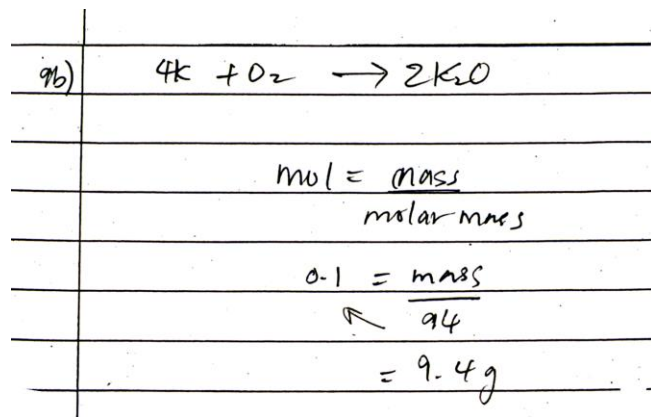 9b) 4K + O₂ → 2K₂O
mol = mass
molar mass
0.1 = mass
94
= 9.4g